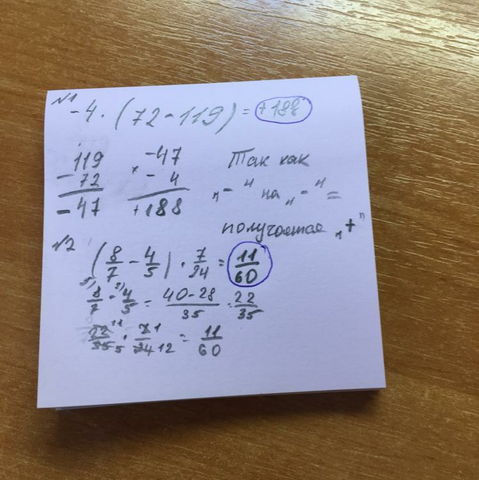 №1
-4 · (72-119) = +188
119
- 72
-47
-47
× -4
+188
Так как
„-" на „-" =
получается „+"
№2
(8/7 - 4/5) · 7/24 = 11/60
5) 8/7 - 4/5 = 40-28/35 = 22/35
22 11/35 5 · 7 1/24 12 = 11/60